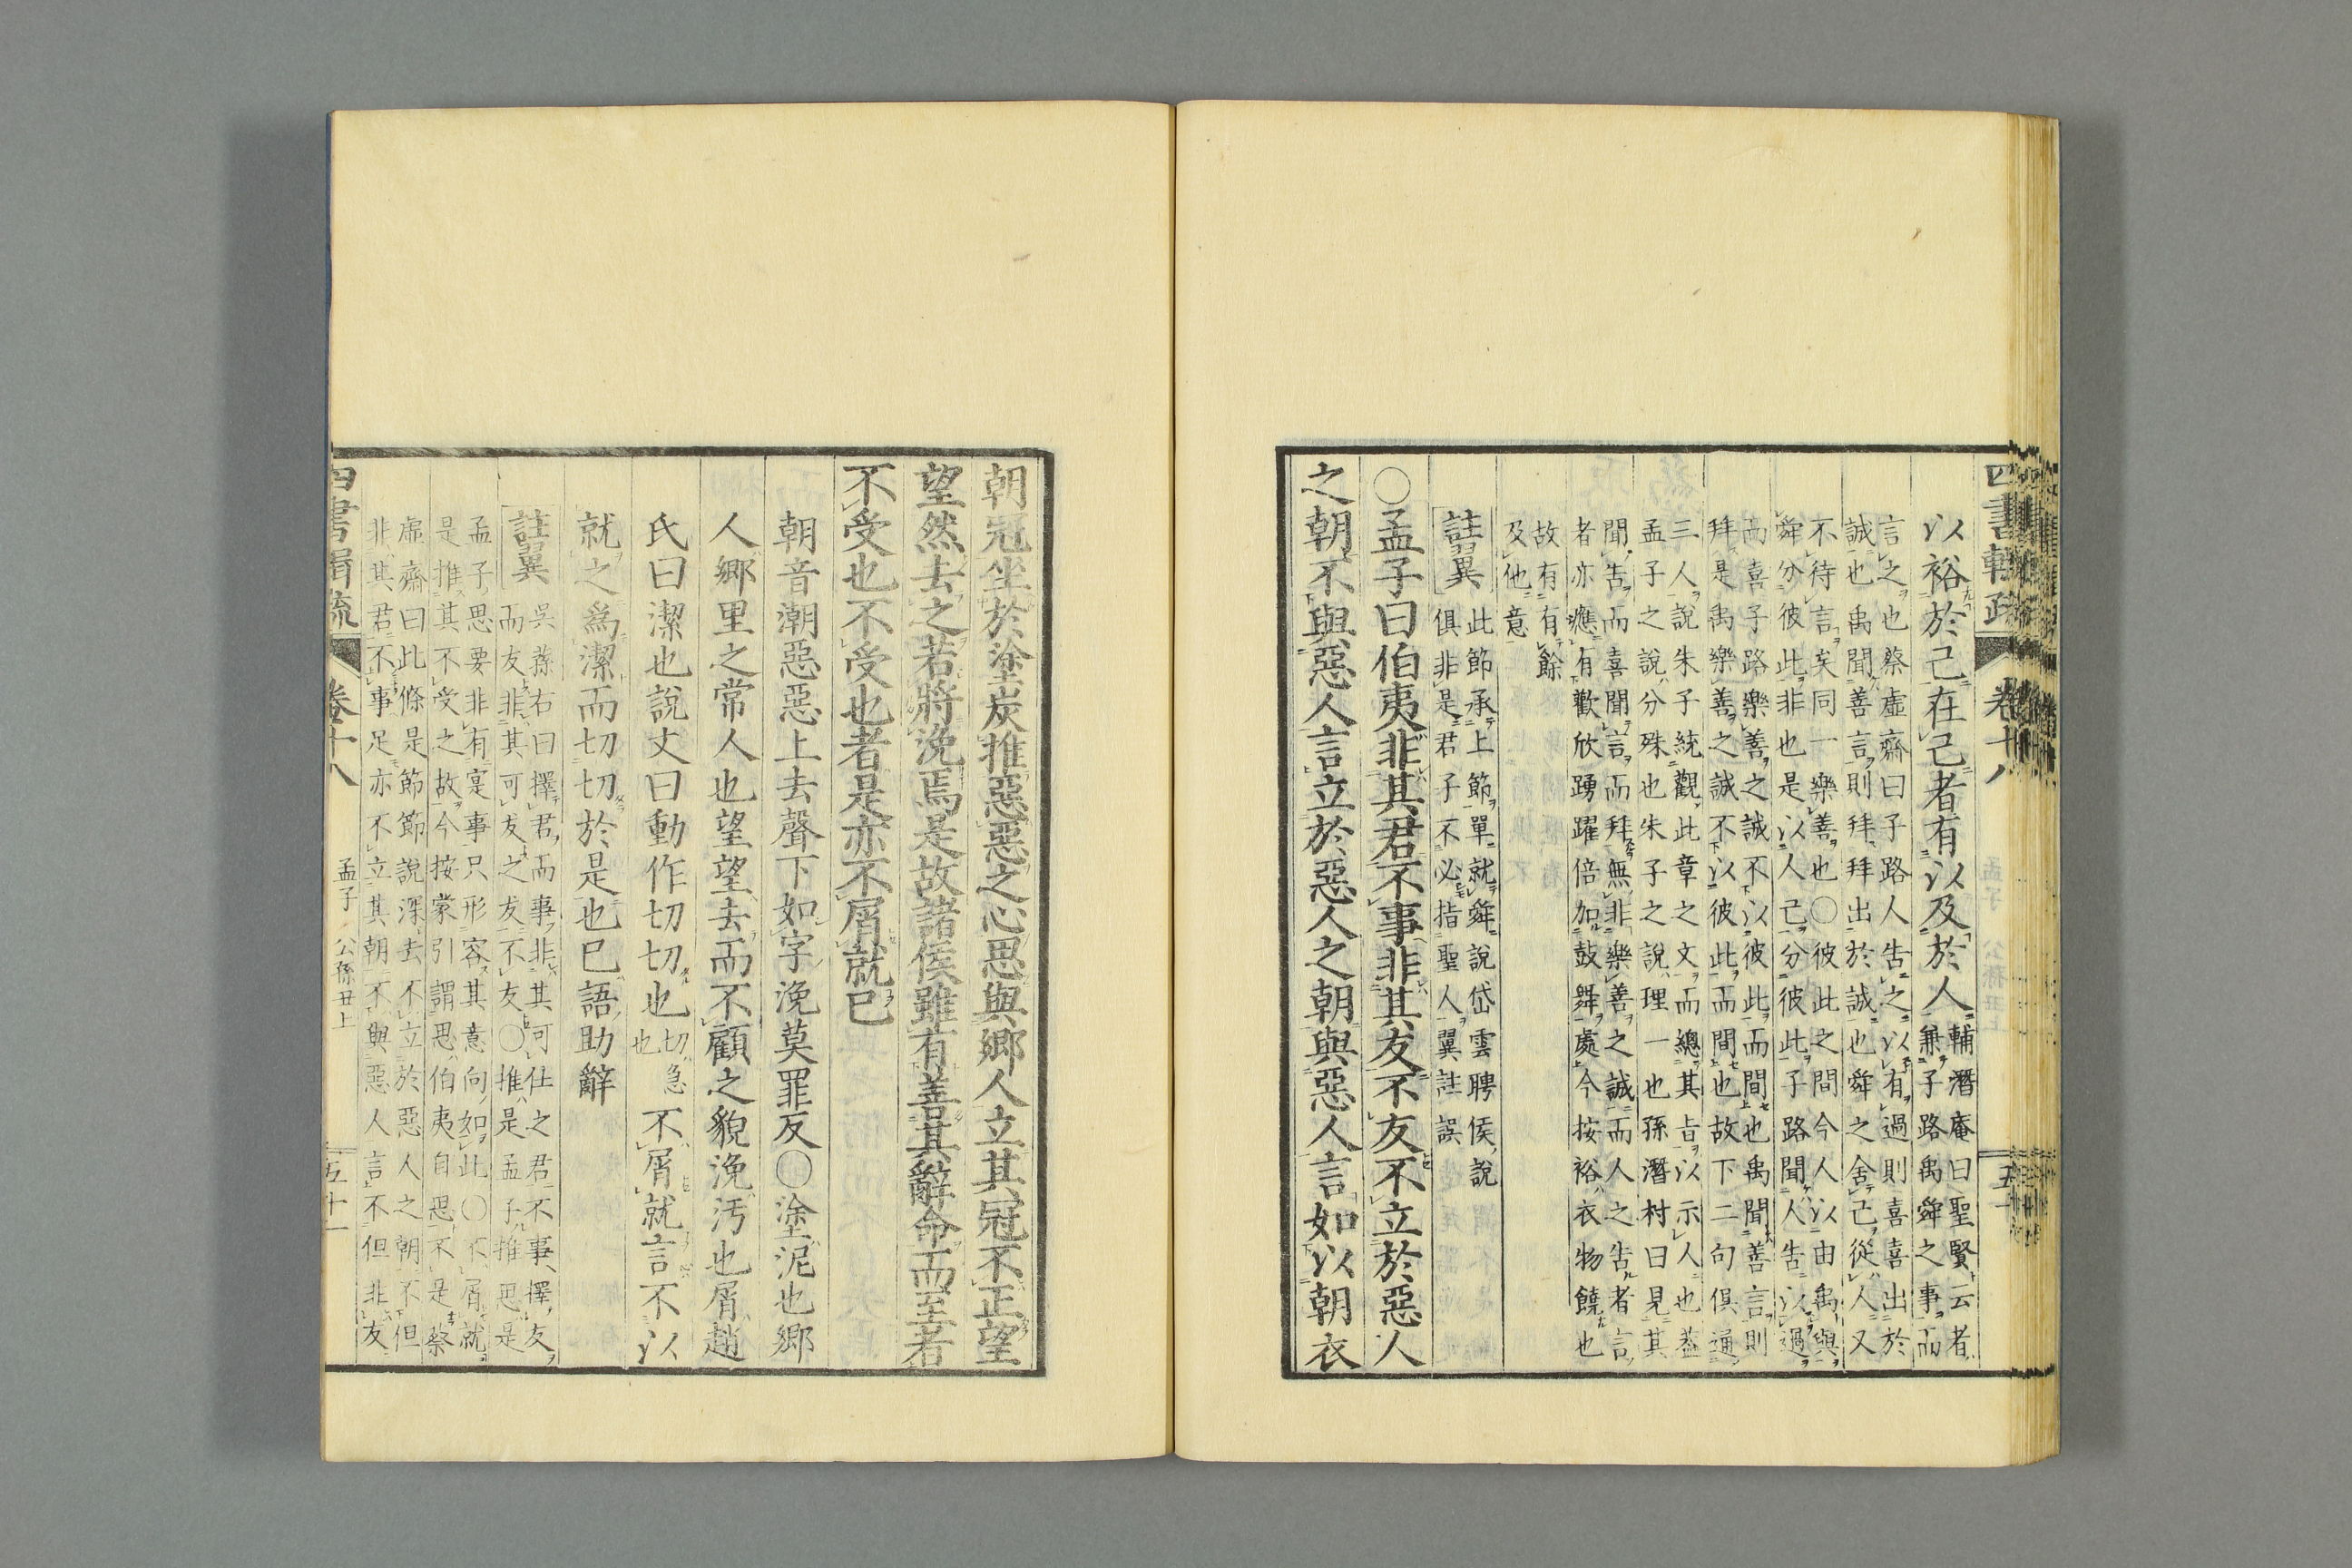 以裕於己在己者有以及於人輔潛庵曰聖賢云者
兼子路禹舜之事而
言之也蔡虛齋曰子路人告之以有過則喜喜出於
誠也禹聞善言則拜拜出於誠也舜之舍己從人又
不待言矣同一樂善也○彼此之間今人以由禹與
舜分彼此非也是以人己分彼此子路聞人告以過
而喜子路樂善之誠不以彼此而間也禹聞善言則
拜是禹樂善之誠不以彼此而間也故下二句俱通
三人說朱子統觀此章之文而總其旨以示人也蓋
孟子之說分殊也朱子之說理一也孫潛村曰見其
聞告而喜聞言而拜無非樂善之誠而人之告者言
者亦應有歡欣踴躍倍加鼓舞處今按裕衣物饒也
故有有餘
及他意
註翼
此節承上節單就舜說岱雲聘侯說
俱非是君子不必指聖人翼註誤
○孟子曰伯夷非其君不事非其友不友不立於惡人
之朝不與惡人言立於惡人之朝與惡人言如以朝衣
朝冠坐於塗炭推惡惡之心思與鄉人立其冠不正望
望然去之若將浼焉是故諸侯雖有善其辭命而至者
不受也不受也者是亦不屑就已
朝音潮惡惡上去聲下如字浼莫罪反○塗泥也鄉
人鄉里之常人也望望去而不顧之貌浼汚也屑趙
氏曰潔也說文曰動作切切也切急
也不屑就言不以
就之爲潔而切切於是也已語助辭
註翼
吳蓀右曰擇君而事非其可仕之君不事擇友
而友非其可友之友不友○推是孟子推思是
孟子思要非有寔事只形容其意向如此○不屑就
是推其不受之故今按蒙引謂思伯夷自思不是蔡
虛齋曰此條是節節說深去不立於惡人之朝不但
非其君不事足亦不立其朝不與惡人言不但非友
卷十八
孟子 公孫丑上
五十一